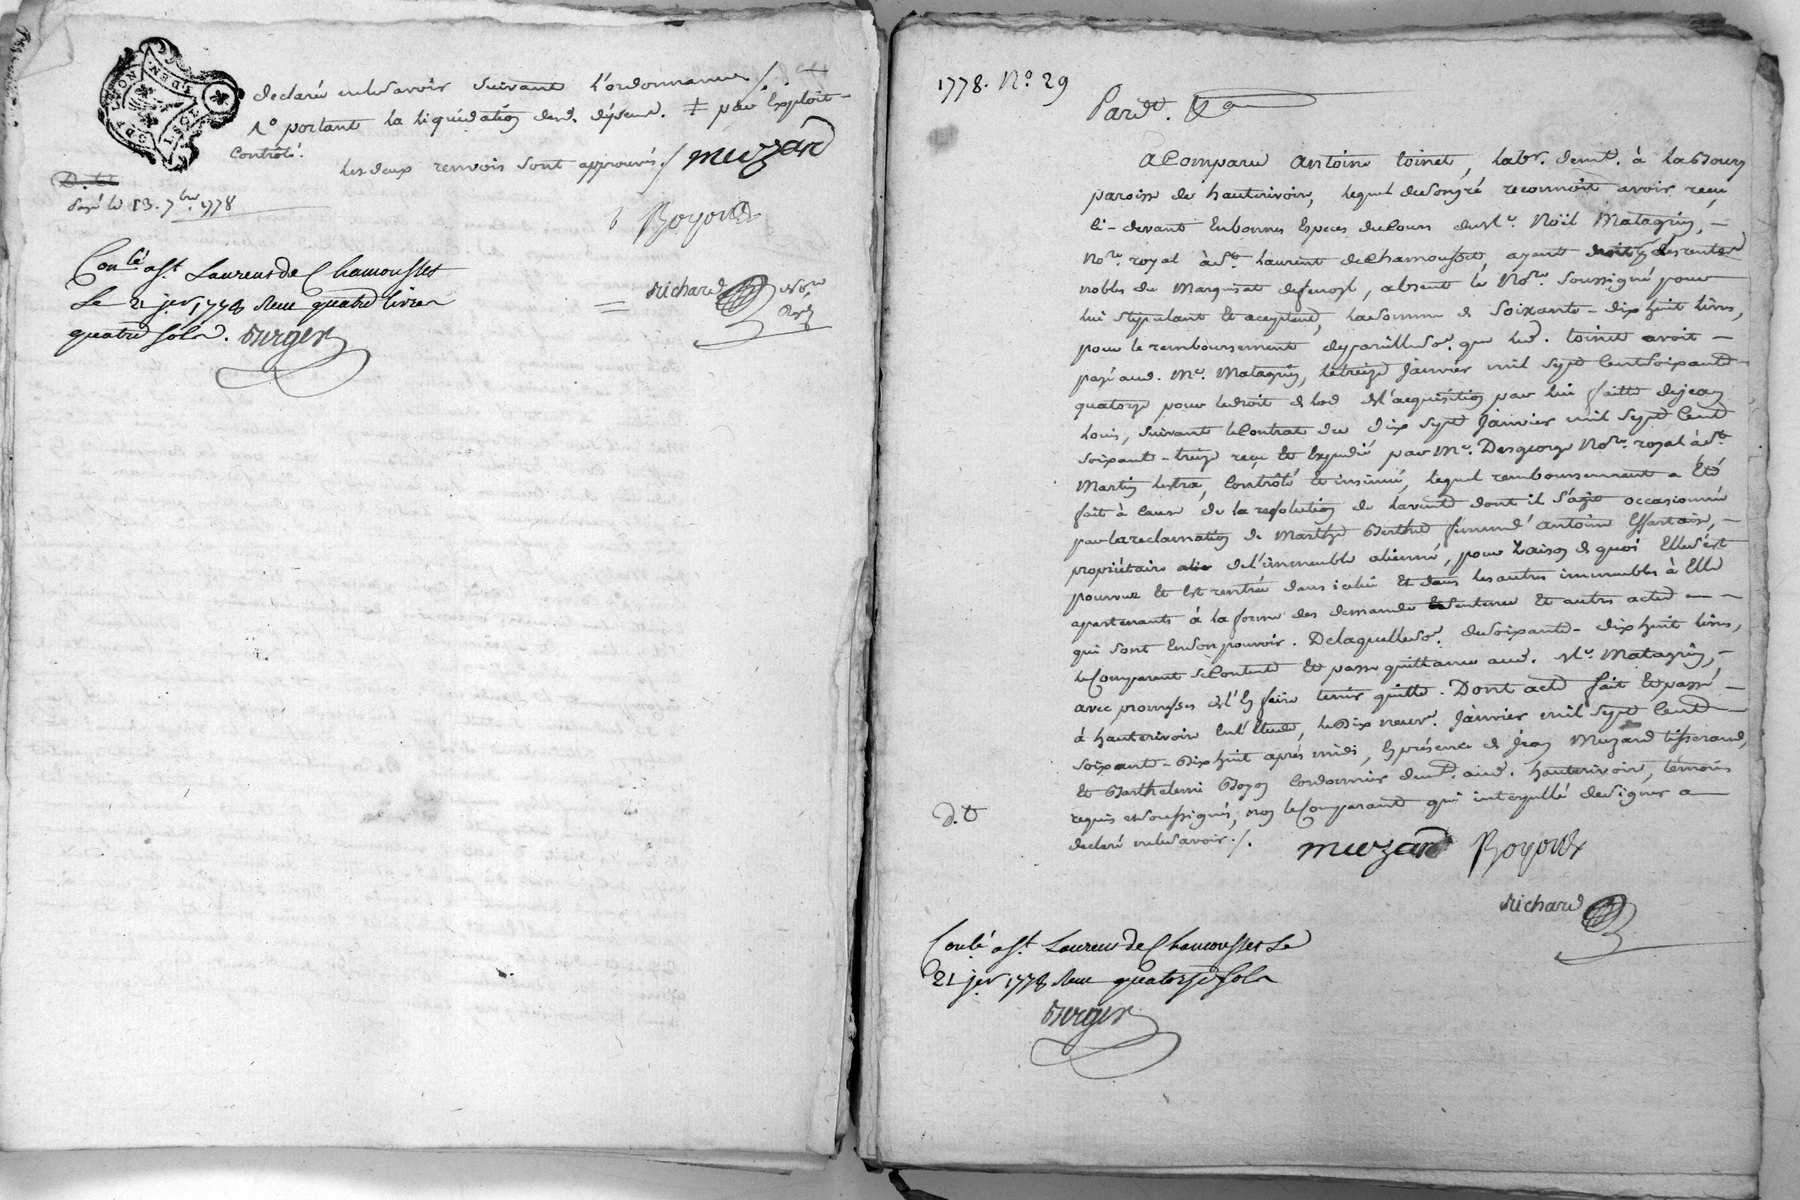 declaré ne le savoir suivant l'ordonnance /
1° portant la liquidation desd. dépens. ≠ par Exploit
Controlé.
les deux renvois sont approuvés ./ muzard
payé le 13. 7bre 1778
Boyoud
Conlé a St. Laurens de Chamousset
Le 21 jer 1778 Reçu quatre livres
quatre sols. Berger
Richard Nore
Royl
1778. N.° 29
Pardt.
A Comparu Antoine toinet, labr. demt. à la
paroisse de hauterivoire, lequel de son gré reconnoit avoir reçu
ci-devant en bonnes Especes du Cours de Me. Noël Matagrin, -
Nore. royal à St. Laurent de Chamousset, ayant droit des rentes
nobles du Marquisat de , absent le Nore. soussigné pour
lui stipulant et aceptant, la somme de soixante-dix huit livres,
pour le remboursement de pareille so. que led. toinet avoit -
payé aud. Me. Matagrin, le treize janvier mil sept Cent soixante
quatorze pour le droit de lod de l'acquisition par lui faitte de jean
Louis, suivant le Contrat du dix sept janvier mil sept Cent
soixante-treize reçu et Expedié par Me. Desgeorge Nore. royal à St.
Martin lestra, Contrôlé et insinué, lequel remboursement a Eté
fait à Cause de la resolution de la vente dont il s'agit occasionnée
par la reclamation de Marthe Berthet femme d'antoine -
propriétaire de l'immeuble alienné, pour raison de quoi Elle s'est
pourvue et est rentrée dans icelui et dans les autres immeubles à Elle
apartenants à la forme des demande sentence et autres actes - -
qui sont en son pouvoir. De laquelle so. de soixante-dix huit livres,
le Comparant se Contente et passe quittance aud. Me. Matagrin, -
avec promesses de l'En faire tenir quitte. Dont acte fait et passé -
à hauterivoire En l'Etude, le Dix neuf. janvier mil sept Cent
soixante-dix huit après midi, En présence de jean Muzard tisserand,
et Barthelemi Boyou Cordonnier demt. aud. hauterivoire, témoins
requis et soussignés; non le Comparant qui interpellé de signer a
d. t
declaré ne le savoir ./.
muzard Boyoud
Richard
Conlé a St. Laurens de Chamousset Le
21 jer 1778 Reçu quatorze sols
Berger